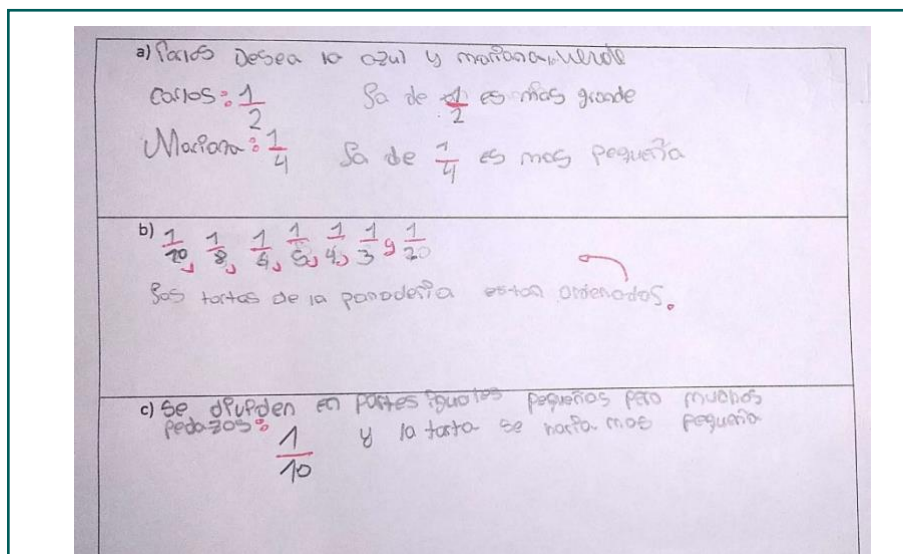 a) Carlos Desea la azul y mariana verde
Carlos: 1/2 La de 1/2 es mas grande
Mariana: 1/4 La de 1/4 es mas pequeña
b) 1/10, 1/8, 1/6, 1/5, 1/4, 1/3 y
Las tortas de la panaderia estan ordenados.
c) Se dividen en partes iguales pequeños pero muchos
pedazos: 1/10 y la torta se haria mas pequeña